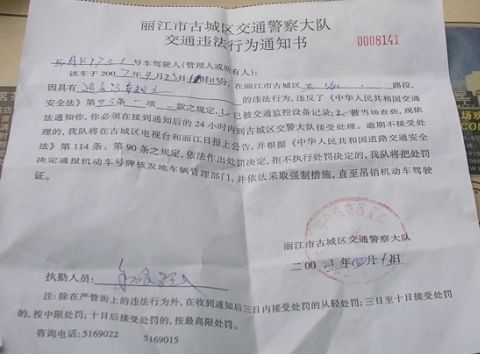 丽江市古城区交通警察大队
交通违法行为通知书
0008141
号车驾驶人(管理人或所有人):
该车于2007年4月23日 时 分,在丽江市古城区 路段,
因具有 的违法行为,违反了《中华人民共和国交通
安全法》第93条一项 款之规定,1.已被交通监控设备记录;2.被当场查获,现依
法通知你,你必须在接到通知后的24小时内到古城区交警大队接受处理。逾期不接受处
理的,我队将在古城区电视台和丽江日报上公告,并根据《中华人民共和国道路交通安全
法》第114条、第90条之规定,依法作出处罚决定,拒不执行处罚决定的,我队将把处罚
决定通报机动车号牌核发地车辆管理部门,并依法采取强制措施,直至吊销机动车驾驶
证。
丽江市古城区交通警察大队
二00 年 月 日
执勤人员:
注:除在严管街上的违法行为外,在收到通知后三日内接受处罚的从轻处罚;三日至十日接受处罚
的,按中限处罚;十日后接受处罚的,按最高限处罚。
咨询电话:5169022 5169015